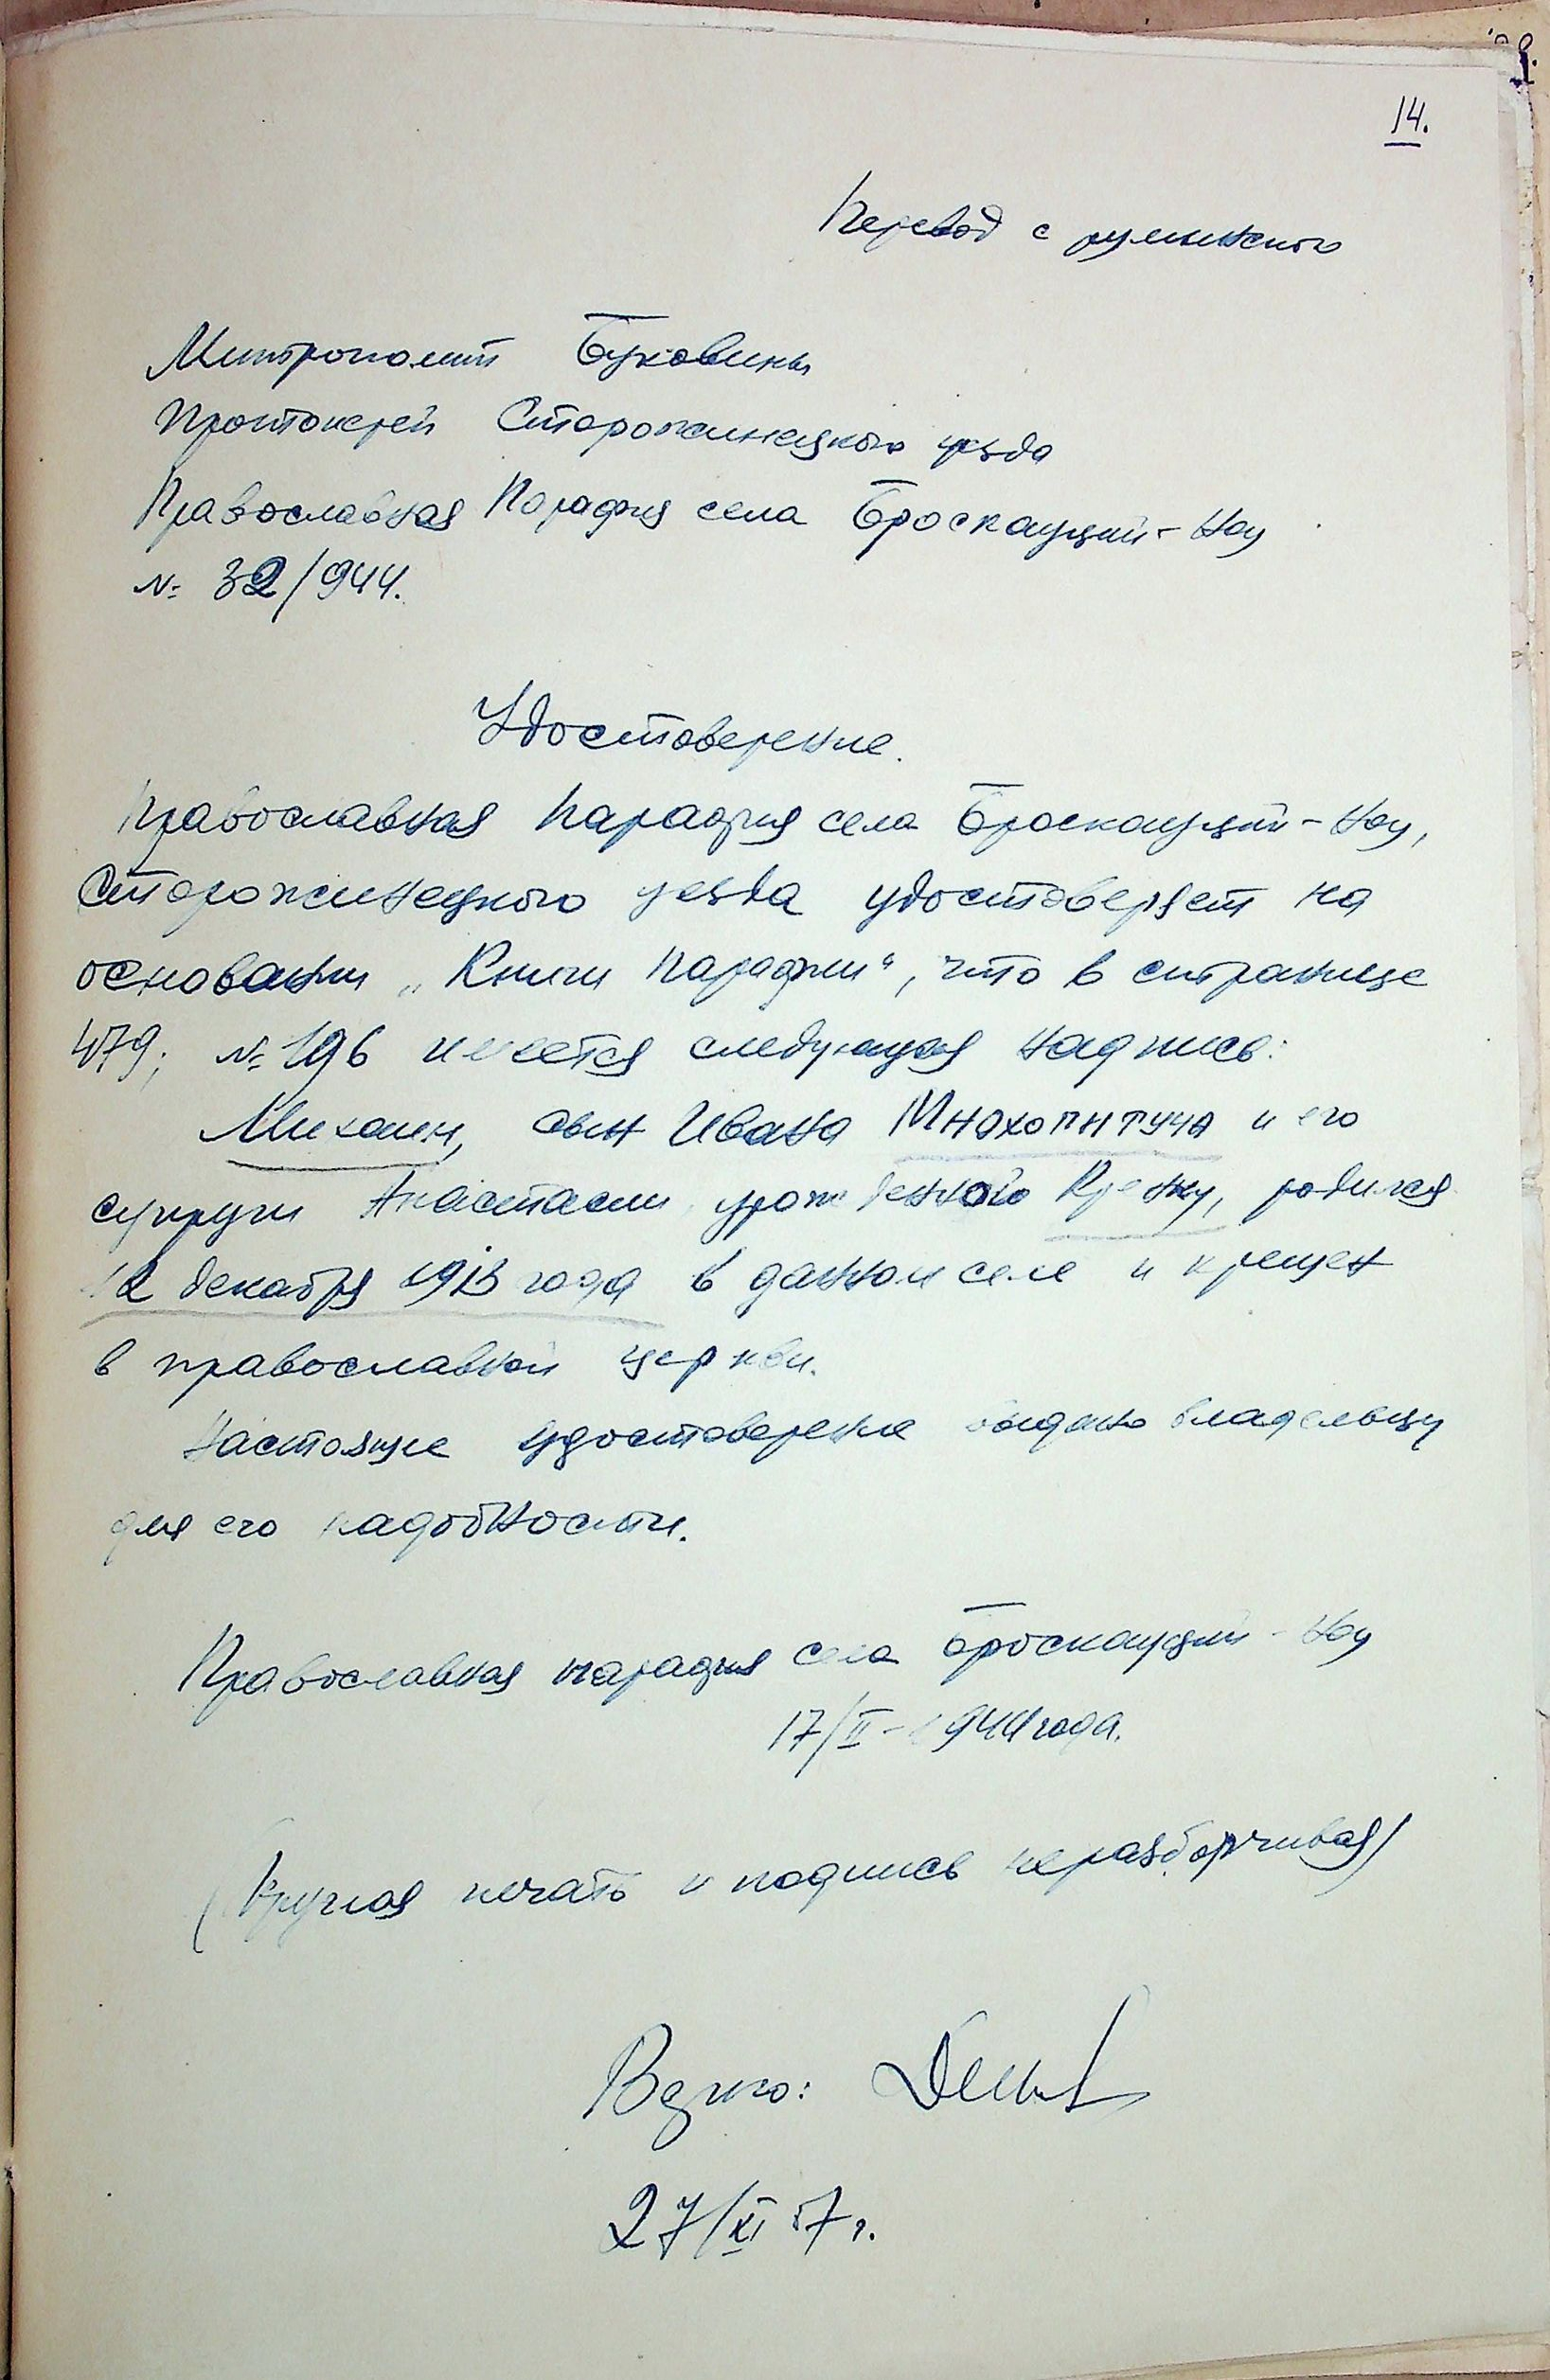 14.
Перевод с румынского
Митрополит Буковины
Протоиерей Сторожинецкого уезда
Православная Парафия села Броскауций-Ноу
№ 32/944.
Удостоверение.
Православная Парафия села Броскауций-Ноу,
Сторожинецкого уезда удостоверяет на
основании „Книги Парафии“, что в странице
479; № 196 имеется следующая надпись:
Михаил, сын Ивана Мнохопитуча и его
супруги Анастасии урожденного Крецу, родился
12 декабря 1913 года в данном селе и крещен
в православной церкви.
Настоящие удостоверение выдано владельцу
для его надобности.
Православная парафия села Броскауций-Ноу
17/II-1944 года.
(Круглая печать и подпись неразборчивая)
Верно:
27/XI 57 г.